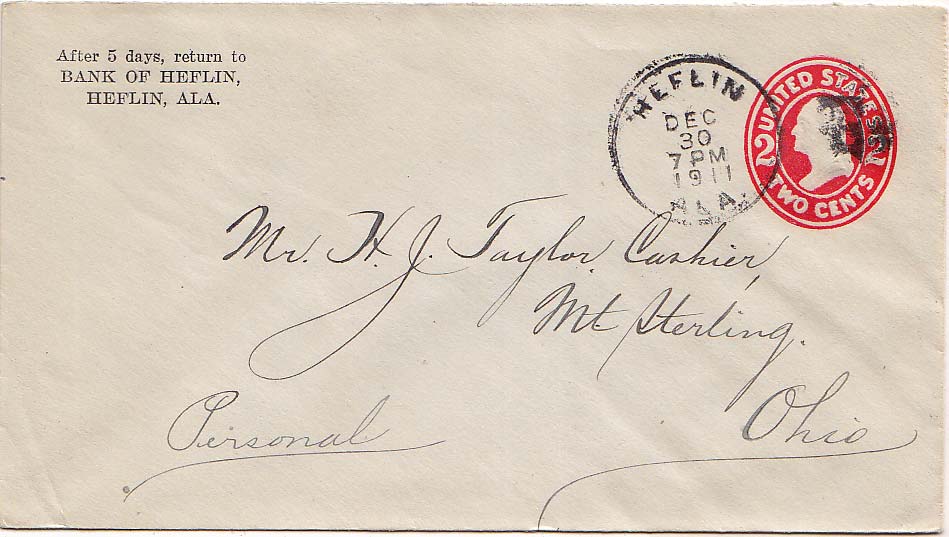 After 5 days, return to
BANK OF HEFLIN,
HEFLIN, ALA.
HEFLIN
DEC
30
7 PM
1911
ALA.
UNITED STATES
2
TWO CENTS
Mr. H. J. Taylor Cashier,
Mt Sterling.
Ohio
Personal